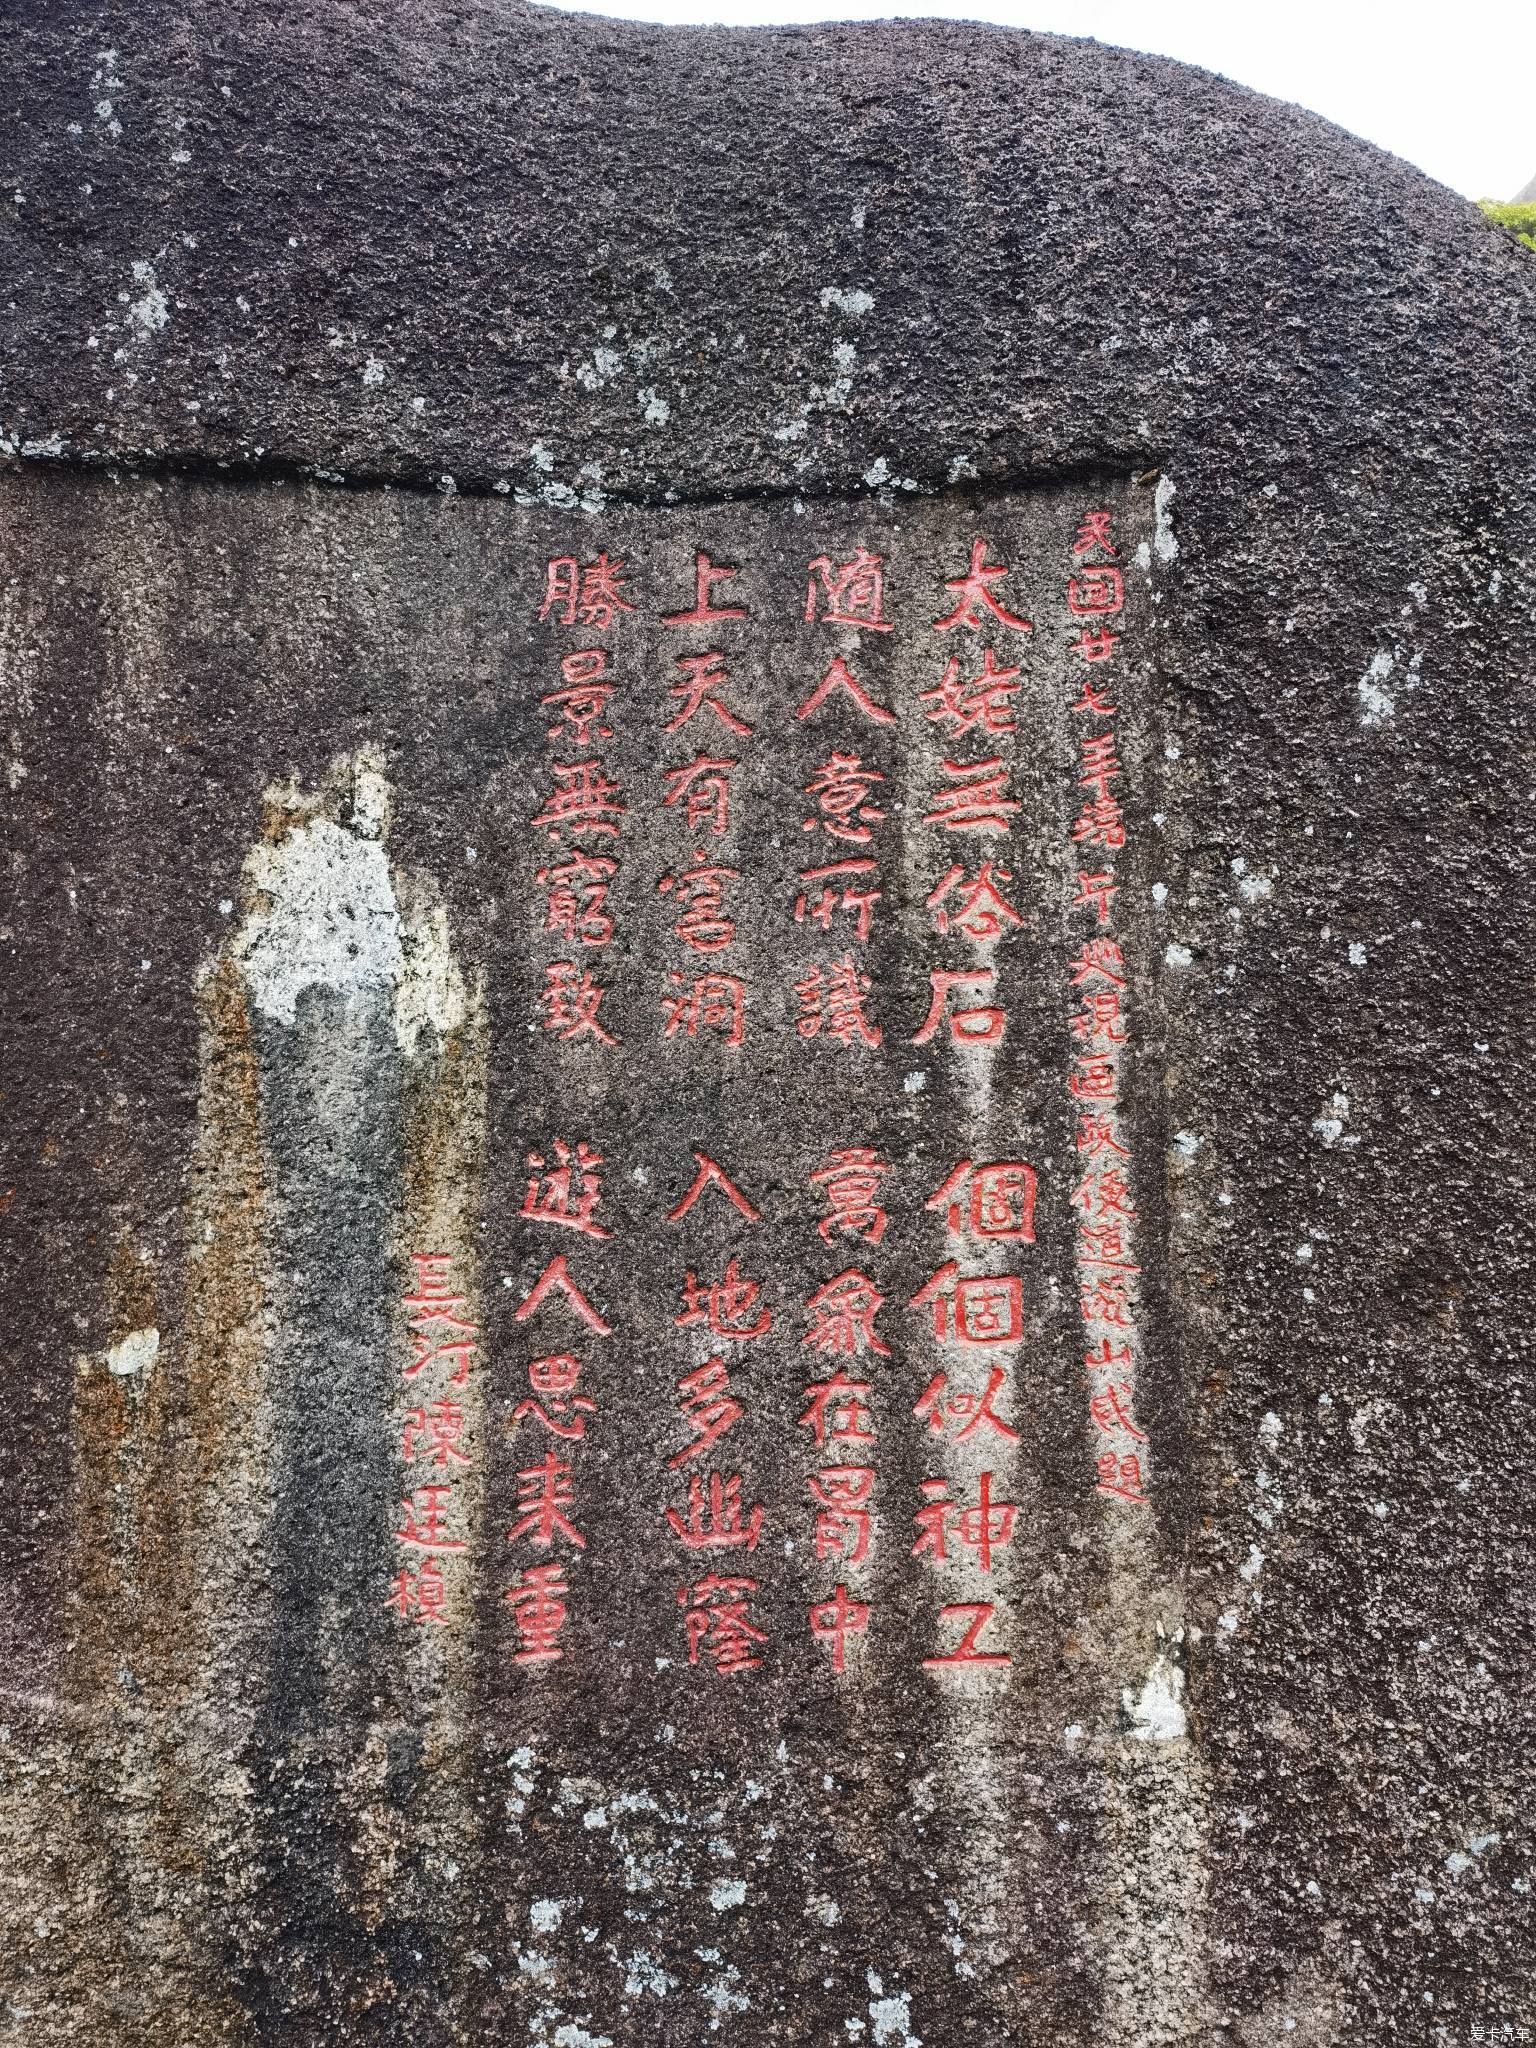 民国廿七年端午巡視区政便道游山感題
太姥無俗石 個個似神工
隨人意所識 萬象在胃中
上天有窩洞 入地多幽窿
勝景無窮致 遊人思来重
長汀陳廷楨
爱卡汽车